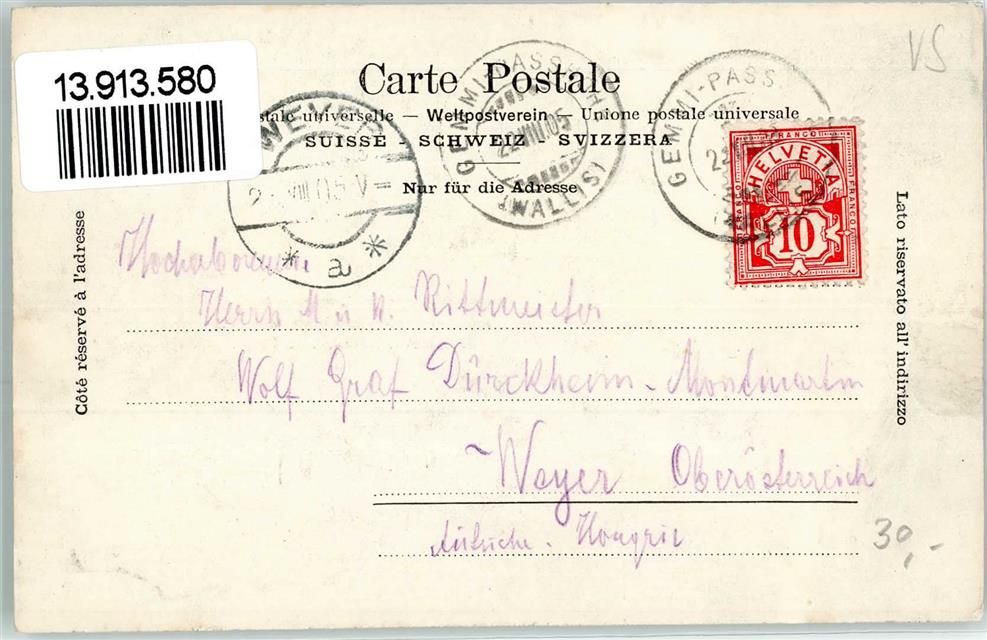 13.913.580
VS
Carte Postale
stale universelle — Weltpostverein — Unione postale universale
SUISSE - SCHWEIZ - SVIZZERA
Nur für die Adresse
WEYER
VIII 05 V
a
GEMMI-PASSHÖHE
22.VIII.05
(WALLIS)
GEMMI-PASS
FRANCO
HELVETIA
10
Côté réservé à l'adresse
Lato riservato all' indirizzo
Herrn k u k. Rittmeister
Wolf Graf Dürckheim-Montmartin
Weyer Oberösterreich
Autriche-Hongrie
30,-